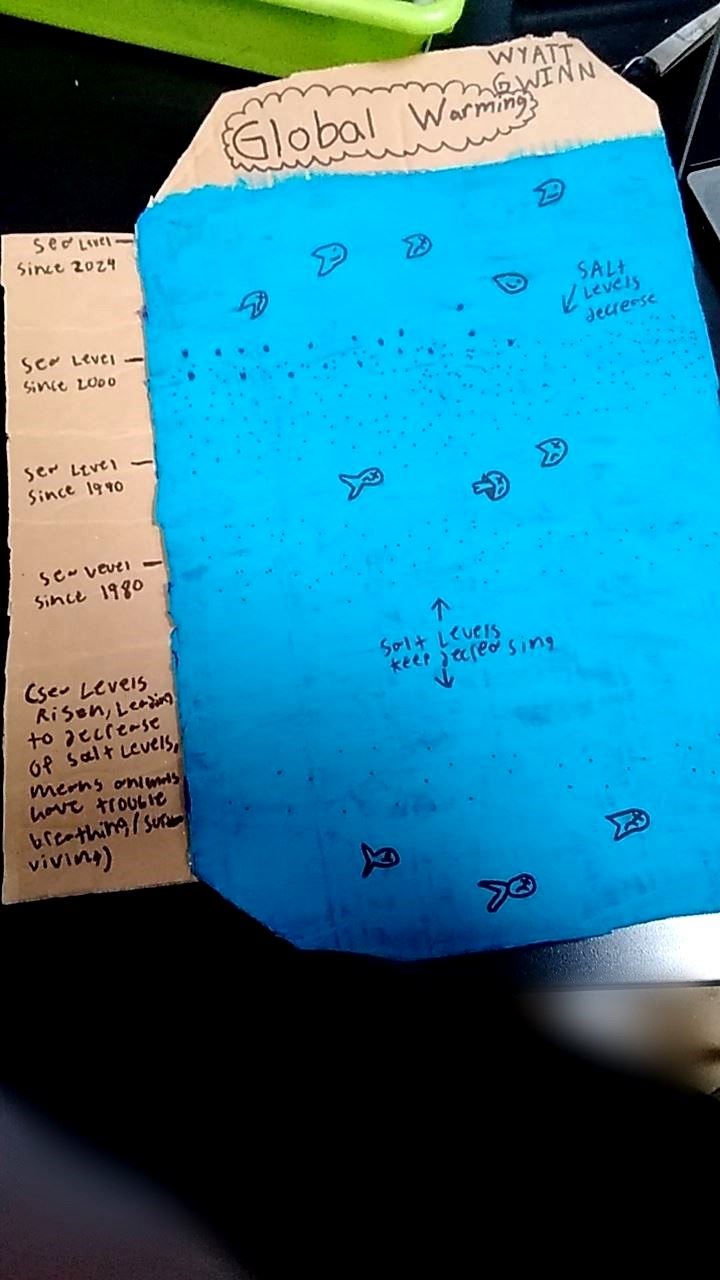 WYATT
GWINN
Global Warming
Sea Level
Since 2024
SALt
Levels
decrease
Sea Level
Since 2000
Sea Level
Since 1990
Sea Level
Since 1980
Salt Levels
keep decreasing
(Sea Levels
Risen, Leading
to decrease
of salt Levels,
means animals
have trouble
breathing/sur
viving)